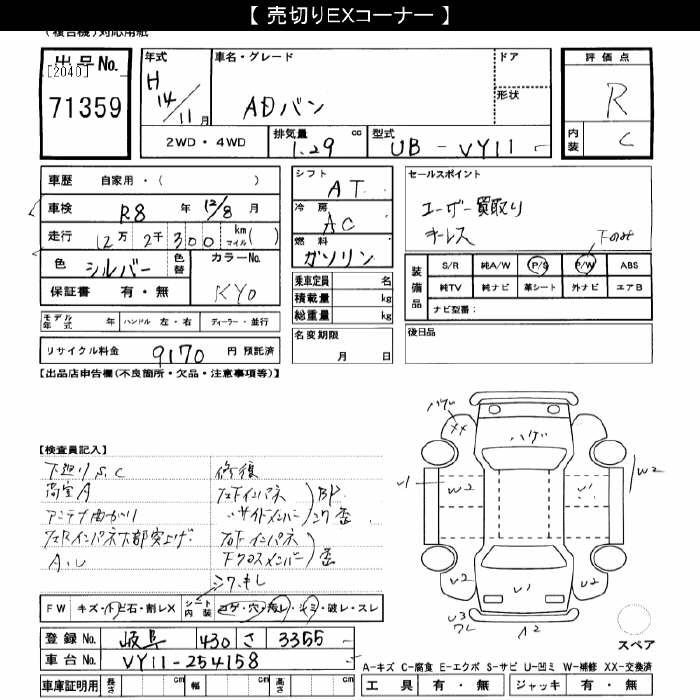 【 売切りEXコーナー 】
(複合機)対応用紙
出品No.
[2040]
71359
年式
H 14/11月
車名・グレード
ADバン
ドア
形状
評価点
R
内装
C
2WD・4WD
排気量 cc
1.29
型式
UB-VY11
車歴 自家用・( )
車検 R8年 12/8月
走行 12万 2千 300 km マイル( )
色 シルバー
色替
カラーNo.
KY0
保証書 有・無
シフト
AT
冷房
AC
燃料
ガソリン
乗車定員 名
積載量 kg
総重量 kg
セールスポイント
ユーザー買取り
キーレス
下のみ
装備品
S/R 純A/W P/S P/W ABS
純TV 純ナビ 革シート 外ナビ エアB
ナビ型番:
モデル年式 年 ハンドル 左・右 ディーラー・並行
名変期限
月 日
後日品
リサイクル料金 9170 円 預託済
【出品店申告欄(不良箇所・欠品・注意事項等)】
【検査員記入】
下廻りS.C
荷室A
アンテナ曲がり
A.U
修復
BP
FW キズ・ト ビ石・割レX
シート内装
コゲ・穴・汚レ・シミ・破レ・スレ
登録No. 岐阜 430 さ 3355
車台No. VY11-254158
車庫証明用 長さ cm 幅 cm 高さ cm
ハゲ
XX
ハゲ
U1
W2
U1
W2
U2
U1
U2
U3
ワレ
A2
スペア
A-キズ C-腐食 E-エクボ S-サビ U-凹ミ W-補修 XX-交換済
工具 有・無 ジャッキ 有・無